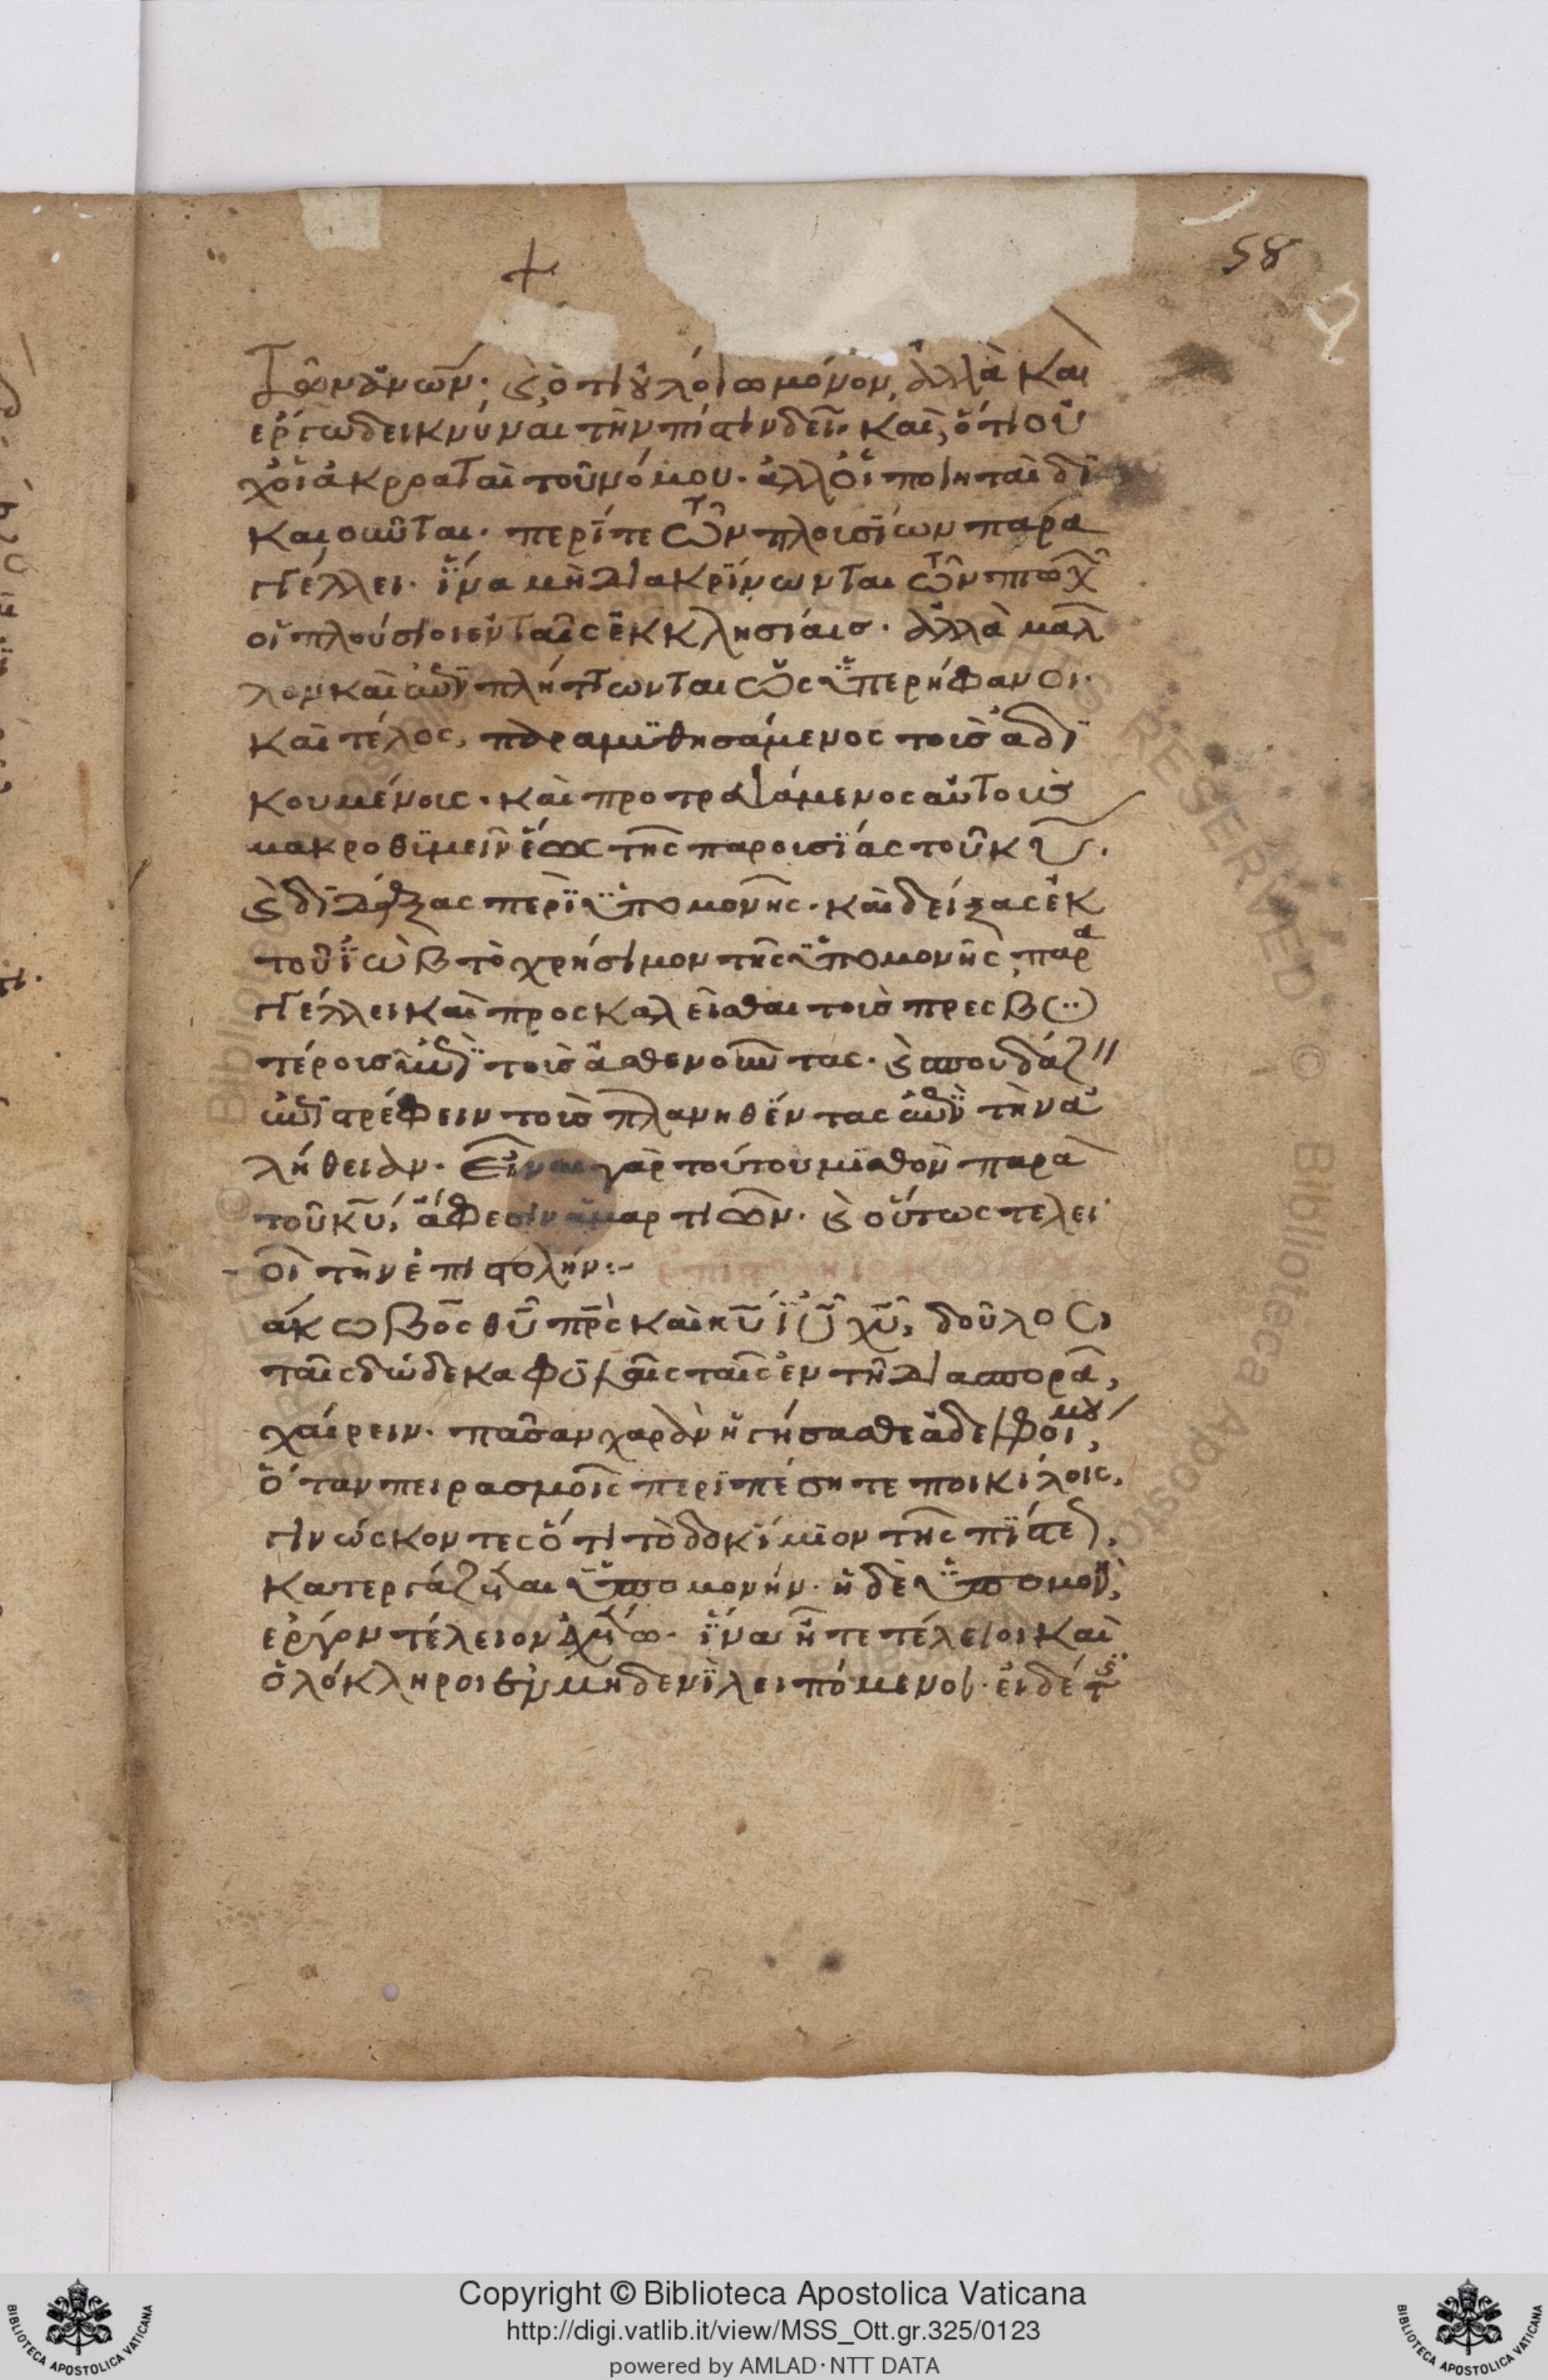 58
τῶν ἀνῶν· καὶ ὅτι οὐ λόγω μόνον, ἀλλὰ καὶ
ἔργω δεικνύναι τὴν πίστιν δεῖ· καὶ, ὅτι οὐ
χ' οἱ ἀκροαταὶ τοῦ νόμου· ἀλλ' οἱ ποιηταὶ δϊ
καιοῦνται· περΐ τε τῶν πλουσΐων παρα
γγέλλει· ἵνα μὴ διακρΐνωνται τῶν πτωχῶ
οἱ πλούσιοι ἐν ταῖς ἐκκλησιάισ· ἀλλὰ μαλ
λον καὶ ἐπιπλήττωνται ὡς ὑπερήφανοι·
καὶ τέλος, παραμϋθησάμενος τοὺσ ἀδϊ
κουμένους· καὶ προτρεψάμενος αὐτοὺσ
μακροθϋμεῖν ἕως τῆς παρουσΐας τοῦ κυ·
καὶ διδάξας περῒ ὑπομονῆς· καὶ δείξας ἐκ
τοῦ ἰὼβ τὸ χρήσιμον τῆς ὑπομονῆς, παρα
γγέλλει καὶ προσκαλεῖσθαι τοὺσ πρεσβυ
τέρουσ ἐπῒ τοὺσ ἀσθενοῦντας· καὶ σπουδάζ
ἐπιστρέφειν τοὺσ πλανηθέντας ἐπῒ τὴν ἀ
λήθειαν· εἶναι γὰρ τούτου μϊσθὸν παρὰ
τοῦ κυ, ἄφεσιν ἁμαρτιῶν· καὶ οὕτως τελει
οῖ τὴν ἐπιστολήν:-
άκωβος θυ πρς καὶ κυ ϊυ χυ, δοῦλος
ταῖς δώδεκα φυλαῖς ταῖς ἐν τῆ διασπορᾶ,
χαίρειν· πᾶσαν χαρὰν ἡγήσασθε ἀδελφοί μου,
ὅταν πειρασμοῖς περϊπέσητε ποικίλοις,
γινώσκοντες ὅτι τὸ δοκΐμϊον τῆς πΐστεως,
κατεργάζεται ὑπομονήν· ἡ δὲ ὑπομονὴ,
ἔργον τέλειον ἐχέτω· ἵνα ἦτε τέλειοι καὶ
ὁλόκληροι ἐν μηδενῒ λειπόμενοι· εἰ δέ τις
Copyright © Biblioteca Apostolica Vaticana
http://digi.vatlib.it/view/MSS_Ott.gr.325/0123
powered by AMLAD·NTT DATA
BIBLIOTECA APOSTOLICA VATICANA
BIBLIOTECA APOSTOLICA VATICANA